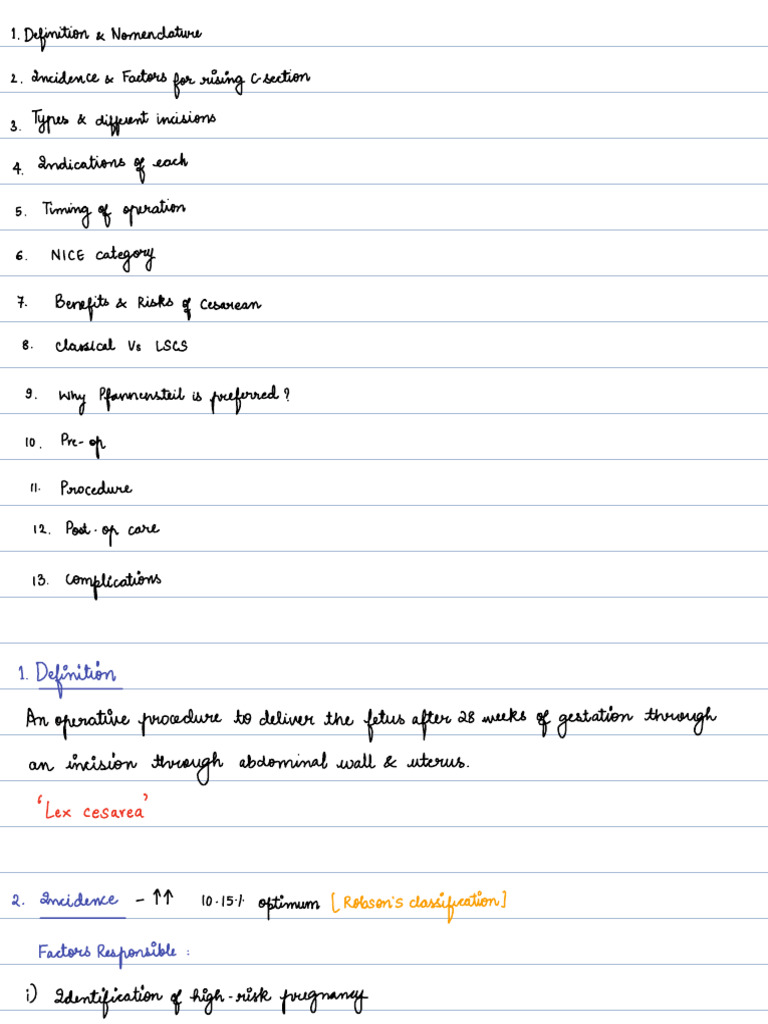 1. Definition & Nomenclature
2. Incidence & Factors for rising C-section
3. Types & different incisions
4. Indications of each
5. Timing of operation
6. NICE category
7. Benefits & Risks of Cesarean
8. Classical Vs LSCS
9. Why Pfannensteil is preferred?
10. Pre-op
11. Procedure
12. Post-op care
13. Complications
1. Definition
An operative procedure to deliver the fetus after 28 weeks of gestation through
an incision through abdominal wall & uterus.
'Lex cesarea'
2. Incidence - ↑↑ 10-15% optimum [Robson's classification]
Factors Responsible :
i) Identification of high-risk pregnancy